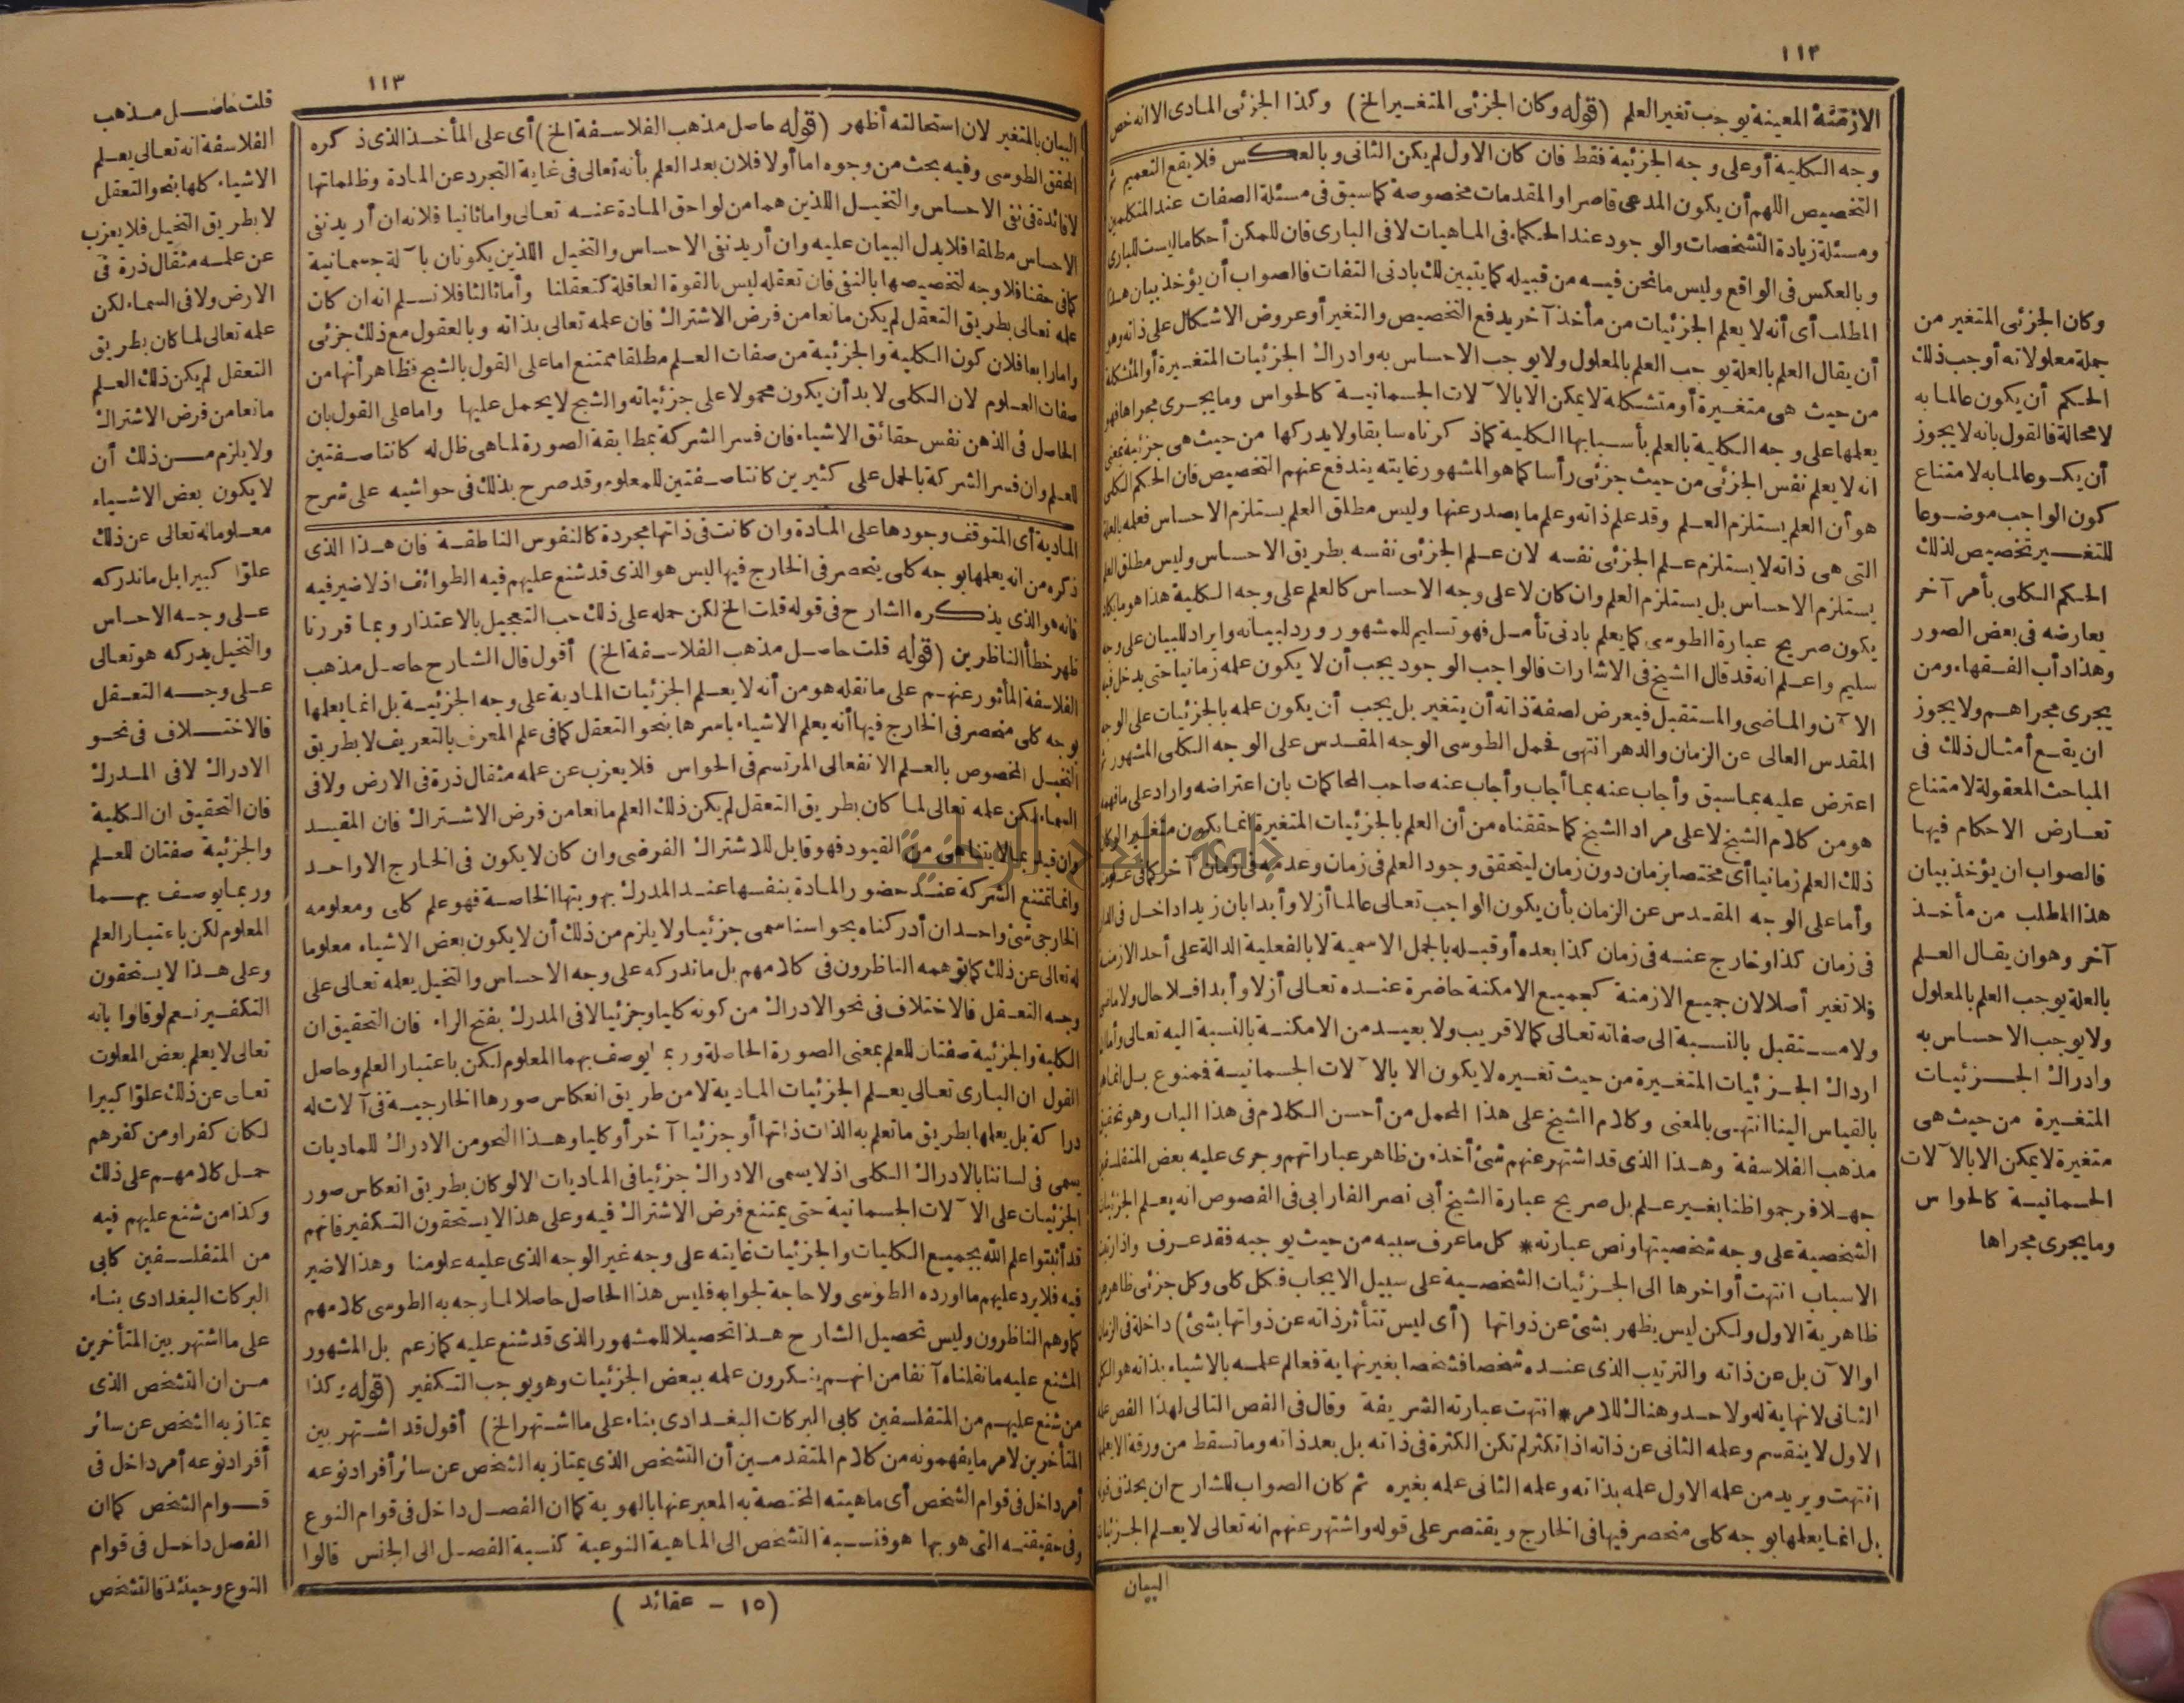 ١١٢
الازمنة المعينة يوجب تغير العلم (قوله وكان الجزئى المتغير الخ) وكذا الجزئى المادى الا انه خص
وجه الكلية أو على وجه الجزئية فقط فان كان الاول لم يكن الثانى وبالعكس فلا يقع التعميم ثم
التخصيص اللهم أن يكون المدعى قاصرا والمقدمات مخصوصة كما سبق فى مسئلة الصفات عند المتكلمين
ومسئلة زيادة التشخصات والوجود عند الحكماء فى الماهيات لا فى البارى فان للممكن أحكاما ليست للبارى
وبالعكس فى الواقع وليس ما نحن فيه من قبيله كما يتبين لك بادنى التفات فالصواب أن يؤخذ بيان هذا
المطلب أى أنه لا يعلم الجزئيات من مأخذ آخر يدفع التخصيص والتغير أو عروض الاشكال على ذاته وهو
أن يقال العلم بالعلة يوجب العلم بالمعلول ولا يوجب الاحساس به وادراك الجزئيات المتغيرة أو المتشكلة
من حيث هى متغيرة أو متشكلة لا يمكن الا بالآلات الجسمانية كالحواس وما يجرى مجراها فهو
يعلمها على وجه الكلية بالعلم بأسبابها الكلية كما ذكرناه سابقا ولا يدركها من حيث هى جزئية بمعنى
انه لا يعلم نفس الجزئى من حيث جزئى رأسا كما هو المشهور غايته يندفع عنهم التخصيص فان الحكم الكلى
هو أن العلم يستلزم العلم وقد علم ذاته وعلم ما يصدر عنها وليس مطلق العلم يستلزم الاحساس فعلمه بالعلة
التى هى ذاته لا يستلزم علم الجزئى نفسه لان علم الجزئى نفسه بطريق الاحساس وليس مطلق العلم
يستلزم الاحساس بل يستلزم العلم وان كان لا على وجه الاحساس كالعلم على وجه الكلية هذا هو ما يكاد
يكون صريح عبارة الطوسى كما يعلم بادنى تأمل فهو تسليم للمشهور ورد لبيانه وايراد للبيان على وجه
سليم واعلم انه قد قال الشيخ فى الاشارات فالواجب الوجود يجب أن لا يكون علمه زمانيا حتى يدخل فيه
الآن والماضى والمستقبل فيعرض لصفة ذاته أن يتغير بل يجب أن يكون علمه بالجزئيات على الوجه
المقدس العالى عن الزمان والدهر انتهى فحمل الطوسى الوجه المقدس على الوجه الكلى المشهور ثم
اعترض عليه بما سبق وأجاب عنه بما أجاب وأجاب عنه صاحب المحاكمات بان اعتراضه وارد على ما فهمه
هو من كلام الشيخ لا على مراد الشيخ كما حققناه من أن العلم بالجزئيات المتغيرة انما يكون متغيرا لو كان
ذلك العلم زمانيا أى مختصا بزمان دون زمان ليتحقق وجود العلم فى زمان وعدمه فى زمان آخر كما فى علومنا
وأما على الوجه المقدس عن الزمان بأن يكون الواجب تعالى عالما أزلا وأبدا بان زيدا داخل فى الدار
فى زمان كذا وخارج عنه فى زمان كذا بعده أو قبله بالجمل الاسمية لا بالفعلية الدالة على أحد الازمنة
فلا تغير أصلا لان جميع الازمنة كجميع الامكنة حاضرة عنده تعالى أزلا وأبدا فلا حال ولا ماضى
ولا مستقبل بالنسبة الى صفاته تعالى كما لا قريب ولا بعيد من الامكنة بالنسبة اليه تعالى وأما ان
ادراك الجزئيات المتغيرة من حيث تغيره لا يكون الا بالآلات الجسمانية فممنوع بل انما هو
بالقياس الينا انتهى بالمعنى وكلام الشيخ على هذا المحمل من أحسن الكلام فى هذا الباب وهو تحقيق
مذهب الفلاسفة وهذا الذى قد اشتهر عنهم شئ أخذ من ظاهر عباراتهم وجرى عليه بعض المتفلسفين
جهلا فرجموا ظنا بغير علم بل صريح عبارة الشيخ أبى نصر الفارابى فى الفصوص انه يعلم الجزئيات
الشخصية على وجه شخصيتها ونص عبارته * كل ما عرف سببه من حيث يوجبه فقد عرف واذا رتبت
الاسباب انتهت أواخرها الى الجزئيات الشخصية على سبيل الايجاب فكل كلى وكل جزئى ظاهر من
ظاهرية الاول ولكن ليس يظهر بشئ عن ذواتها (أى ليس تتأثر ذاته عن ذواتها بشئ) داخلة فى الزمان
او الآن بل عن ذاته والترتيب الذى عنده شخصا فشخصا بغير نهاية فعالم علمه بالاشياء بذاته هو الكل
الثانى لا نهاية له ولا حد وهناك للامر * انتهت عبارته الشريفة وقال فى الفص التالى لهذا الفص علمه
الاول لا ينقسم وعلمه الثانى عن ذاته اذا تكثر لم تكن الكثرة فى ذاته بل بعد ذاته وما تسقط من ورقة الا يعلمها
انتهت ويريد من علمه الاول علمه بذاته وعلمه الثانى علمه بغيره ثم كان الصواب للشارح ان يحذف قوله
بل انما يعلمها بوجه كلى منحصر فيها فى الخارج ويقتصر على قوله واشتهر عنهم انه تعالى لا يعلم الجزئيات
البيان
وكان الجزئى المتغير من
جملة معلولاته أوجب ذلك
الحكم أن يكون عالما به
لا محالة فالقول بانه لا يجوز
أن يكون عالما به لامتناع
كون الواجب موضوعا
للتغير تخصيص لذلك
الحكم الكلى بأمر آخر
يعارضه فى بعض الصور
وهذا دأب الفقهاء ومن
يجرى مجراهم ولا يجوز
ان يقع أمثال ذلك فى
المباحث المعقولة لامتناع
تعارض الاحكام فيها
فالصواب ان يؤخذ بيان
هذا المطلب من مأخذ
آخر وهو ان يقال العلم
بالعلة يوجب العلم بالمعلول
ولا يوجب الاحساس به
وادراك الجزئيات
المتغيرة من حيث هى
متغيرة لا يمكن الا بالآلات
الجسمانية كالحواس
وما يجرى مجراها
١١٣
البيان بالمتغير لان استحالته أظهر (قوله حاصل مذهب الفلاسفة الخ) أى على المأخذ الذى ذكره
المحقق الطوسى وفيه بحث من وجوه اما أولا فلان بعد العلم بأنه تعالى فى غاية التجرد عن المادة وظلماتها
لا فائدة فى نفى الاحساس والتخيل اللذين هما من لواحق المادة عنه تعالى واما ثانيا فلانه ان أريد نفى
الاحساس مطلقا فلا يدل البيان عليه وان أريد نفى الاحساس والتخيل اللذين يكونان بآلة جسمانية
كما فى حقنا فلا وجه لتخصيصها بالنفى فان تعقله ليس بالقوة العاقلة كتعقلنا وأما ثالثا فلا نسلم انه ان كان
علمه تعالى بطريق التعقل لم يكن مانعا من فرض الاشتراك فان علمه تعالى بذاته وبالعقول مع ذلك جزئى
واما رابعا فلان كون الكلية والجزئية من صفات العلم مطلقا ممتنع اما على القول بالشبح فظاهر أنها من
صفات المعلوم لان الكلى لا بد أن يكون محمولا على جزئياته والشبح لا يحمل عليها واما على القول بان
الحاصل فى الذهن نفس حقائق الاشياء فان فسر الشركة بمطابقة الصورة لما هى ظل له كانتا صفتين
للعلم وان فسر الشركة بالحمل على كثيرين كانتا صفتين للمعلوم وقد صرح بذلك فى حواشيه على شرح
المادية أى المتوقف وجودها على المادة وان كانت فى ذاتها مجردة كالنفوس الناطقة فان هذا الذى
ذكره من انه يعلمها بوجه كلى ينحصر فى الخارج فيها ليس هو الذى قد شنع عليهم فيه الطوائف اذ لا ضير فيه
فانه هو الذى يذكره الشارح فى قوله قلت الخ لكن حمله على ذلك حب التعجيل بالاعتذار وبما قررنا
ظهر خطأ الناظرين (قوله قلت حاصل مذهب الفلاسفة الخ) أقول قال الشارح حاصل مذهب
الفلاسفة المأثور عنهم على ما نقله هو من أنه لا يعلم الجزئيات المادية على وجه الجزئية بل انما يعلمها
بوجه كلى منحصر فى الخارج فيها أنه يعلم الاشياء باسرها بنحو التعقل كما فى علم المعرف بالتعريف لا بطريق
التخيل المخصوص بالعلم الانفعالى المرتسم فى الحواس فلا يعزب عن علمه مثقال ذرة فى الارض ولا فى
السماء لكن علمه تعالى لما كان بطريق التعقل لم يكن ذلك العلم مانعا من فرض الاشتراك فان المقيد
وان قيد بما لا يتناهى من القيود فهو قابل للاشتراك الفرضى وان كان لا يكون فى الخارج الا واحد
وانما تمتنع الشركة عند حضور المادة بنفسها عند المدرك بهويتها الخاصة فهو علم كلى ومعلومه
الخارجى شئ واحد ان أدركناه بحواسنا سمى جزئيا ولا يلزم من ذلك أن لا يكون بعض الاشياء معلوما
له تعالى عن ذلك كما توهمه الناظرون فى كلامهم بل ما ندركه على وجه الاحساس والتخيل يعلمه تعالى على
وجه التعقل فالاختلاف فى نحو الادراك من كونه كليا وجزئيا لا فى المدرك بفتح الراء فان التحقيق ان
الكلية والجزئية صفتان للعلم بمعنى الصورة الحاصلة وربما يوصف بهما المعلوم لكن باعتبار العلم وحاصل
القول ان البارى تعالى يعلم الجزئيات المادية لا من طريق انعكاس صورها الخارجية فى آلات له
دراكة بل يعلمها بطريق ما تعلم به الذات ذاتها أو جزئيا آخر أو كليا وهذا النحو من الادراك للماديات
يسمى فى لساننا بالادراك الكلى اذ لا يسمى الادراك جزئيا فى الماديات الا لو كان بطريق انعكاس صور
الجزئيات على الآلات الجسمانية حتى يمتنع فرض الاشتراك فيه وعلى هذا لا يستحقون التكفير فانهم
قد أثبتوا علم الله بجميع الكليات والجزئيات غايته على وجه غير الوجه الذى عليه علومنا وهذا لا ضير
فيه فلا يرد عليهم ما اورده الطوسى ولا حاجة لجوابه فليس هذا الحاصل حاصلا لما رجه به الطوسى كلامهم
كما وهم الناظرون وليس تحصيل الشارح هذا تحصيلا للمشهور الذى قد شنع عليه كما زعم بل المشهور
المشنع عليه ما نقلناه آنفا من انهم ينكرون علمه ببعض الجزئيات وهو يوجب التكفير (قوله وكذا
من شنع عليهم من المتفلسفين كابى البركات البغدادى بناء على ما اشتهر الخ) أقول قد اشتهر بين
المتأخرين لامر ما يفهمونه من كلام المتقدمين أن التشخص الذى يمتاز به الشخص عن سائر أفراد نوعه
أمر داخل فى قوام الشخص أى ماهيته المختصة به المعبر عنها بالهوية كما ان الفصل داخل فى قوام النوع
وفى حقيقته التى هو بها هو فنسبة التشخص الى الماهية النوعية كنسبة الفصل الى الجنس قالوا
(١٥ - عقائد)
قلت حاصل مذهب
الفلاسفة انه تعالى يعلم
الاشياء كلها بنحو التعقل
لا بطريق التخيل فلا يعزب
عن علمه مثقال ذرة فى
الارض ولا فى السماء لكن
علمه تعالى لما كان بطريق
التعقل لم يكن ذلك العلم
مانعا من فرض الاشتراك
ولا يلزم من ذلك أن
لا يكون بعض الاشياء
معلوما له تعالى عن ذلك
علوّا كبيرا بل ما ندركه
على وجه الاحساس
والتخيل يدركه هو تعالى
على وجه التعقل
فالاختلاف فى نحو
الادراك لا فى المدرك
فان التحقيق ان الكلية
والجزئية صفتان للعلم
وربما يوصف بهما
المعلوم لكن باعتبار العلم
وعلى هذا لا يستحقون
التكفير نعم لو قالوا بانه
تعالى لا يعلم بعض المعلومات
تعالى عن ذلك علوّا كبيرا
لكان كفرا ومن كفرهم
حمل كلامهم على ذلك
وكذا من شنع عليهم فيه
من المتفلسفين كابى
البركات البغدادى بناء
على ما اشتهر بين المتأخرين
من ان التشخص الذى
يمتاز به الشخص عن سائر
أفراد نوعه أمر داخل فى
قوام الشخص كما ان
الفصل داخل فى قوام
النوع وحينئذ فالتشخص